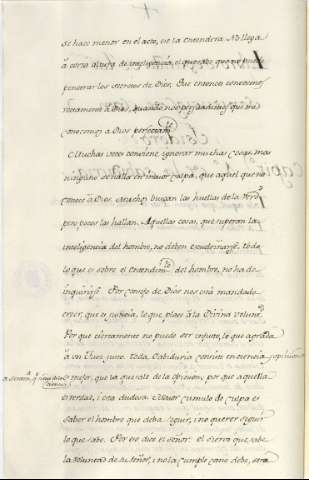 se hace menor en el acto, en la entenderá. No llega
á corta altura de inteligencia, el que sabe que no puede
penetrar los secretos de Dios. Que entonces conocemos
rectamente á Dios, quando nos persuadimos que no
conocemos á Dios perfectam.te
Muchas veces conviene ignorar muchas cosas, mas
ninguno se halla en mayor culpa, que aquel que no
conoce á Dios. Muchos buscan las huellas de la
pero pocos las hallan. Aquellas cosas, que superan la
inteligencia del hombre, no deben escudriñarse. Todo
lo que es sobre el entendim.to del hombre, no ha de
inquirirse. Por consejo de Dios nos está mandado
creer, que es justicia, lo que place á la Divina volun.d
Por que ciertamente no puede ser injusto, lo que agrada
á un Juez justo. Toda Sabiduria consiste en ciencia, i opinion
es mejor, que la que sale de la opinion, por que aquella
es verdad, i esta dudosa. Mayor cumulo de culpa es
saber el hombre que deba seguir, i no querer seguir
lo que sabe. Por eso dice el señor. el siervo que sabe
la voluntad de su Señor, i no la cumple como debe, sera